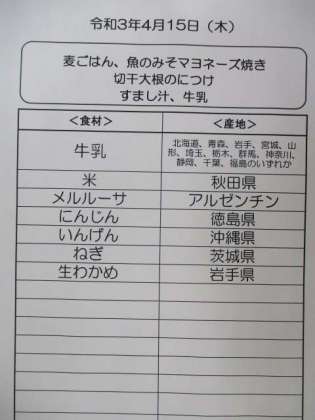 令和3年4月15日（木）
麦ごはん、魚のみそマヨネーズ焼き
切干大根のにつけ
すまし汁、牛乳
＜食材＞ ＜産地＞
牛乳 北海道、青森、岩手、宮城、山
形、埼玉、栃木、群馬、神奈川、
静岡、千葉、福島のいずれか
米 秋田県
メルルーサ アルゼンチン
にんじん 徳島県
いんげん 沖縄県
ねぎ 茨城県
生わかめ 岩手県